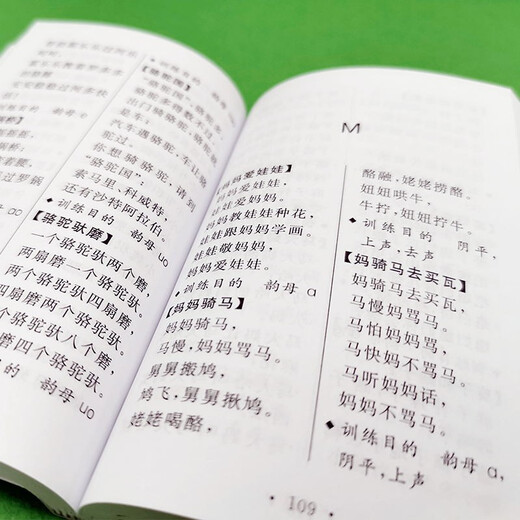 【骆驼国】
"骆驼国",骆驼多,
骆驼多得数不过。
出门骑骆驼,
是车;
汽车遇骆驼,车让骆
驼过。
你想骑骆驼,请到
"骆驼国":
索马里、科威特,
还有沙特阿拉伯。
◆训练目的 韵母 uo
【骆驼驮磨】
一个骆驼驮两个磨,
两扇磨一个骆驼驮。
两个骆驼驮四扇磨,
扇磨两个骆驼驮。
个骆驼驮八个磨,
磨四个骆驼驮。
目的 韵母 uo
M
【妈妈爱娃娃】
妈妈爱娃娃,
娃娃爱妈妈。
妈妈教娃娃种花,
娃娃跟妈妈学画。
娃娃敬妈妈,
妈妈爱娃娃。
◆训练目的 韵母 ɑ
【妈妈骑马】
妈妈骑马,
马慢,妈妈骂马。
舅舅搬鸠,
鸠飞,舅舅揪鸠。
姥姥喝酪,
酪融,姥姥捞酪。
妞妞哄牛,
牛拧,妞妞拧牛。
◆训练目的 阴平,
上声,去声
【妈骑马去买瓦】
妈骑马去买瓦,
马慢妈骂马。
马怕妈妈骂,
马快妈不骂马。
马听妈妈话,
妈妈不骂马。
◆训练目的 韵母 ɑ,
阴平,上声
·109·